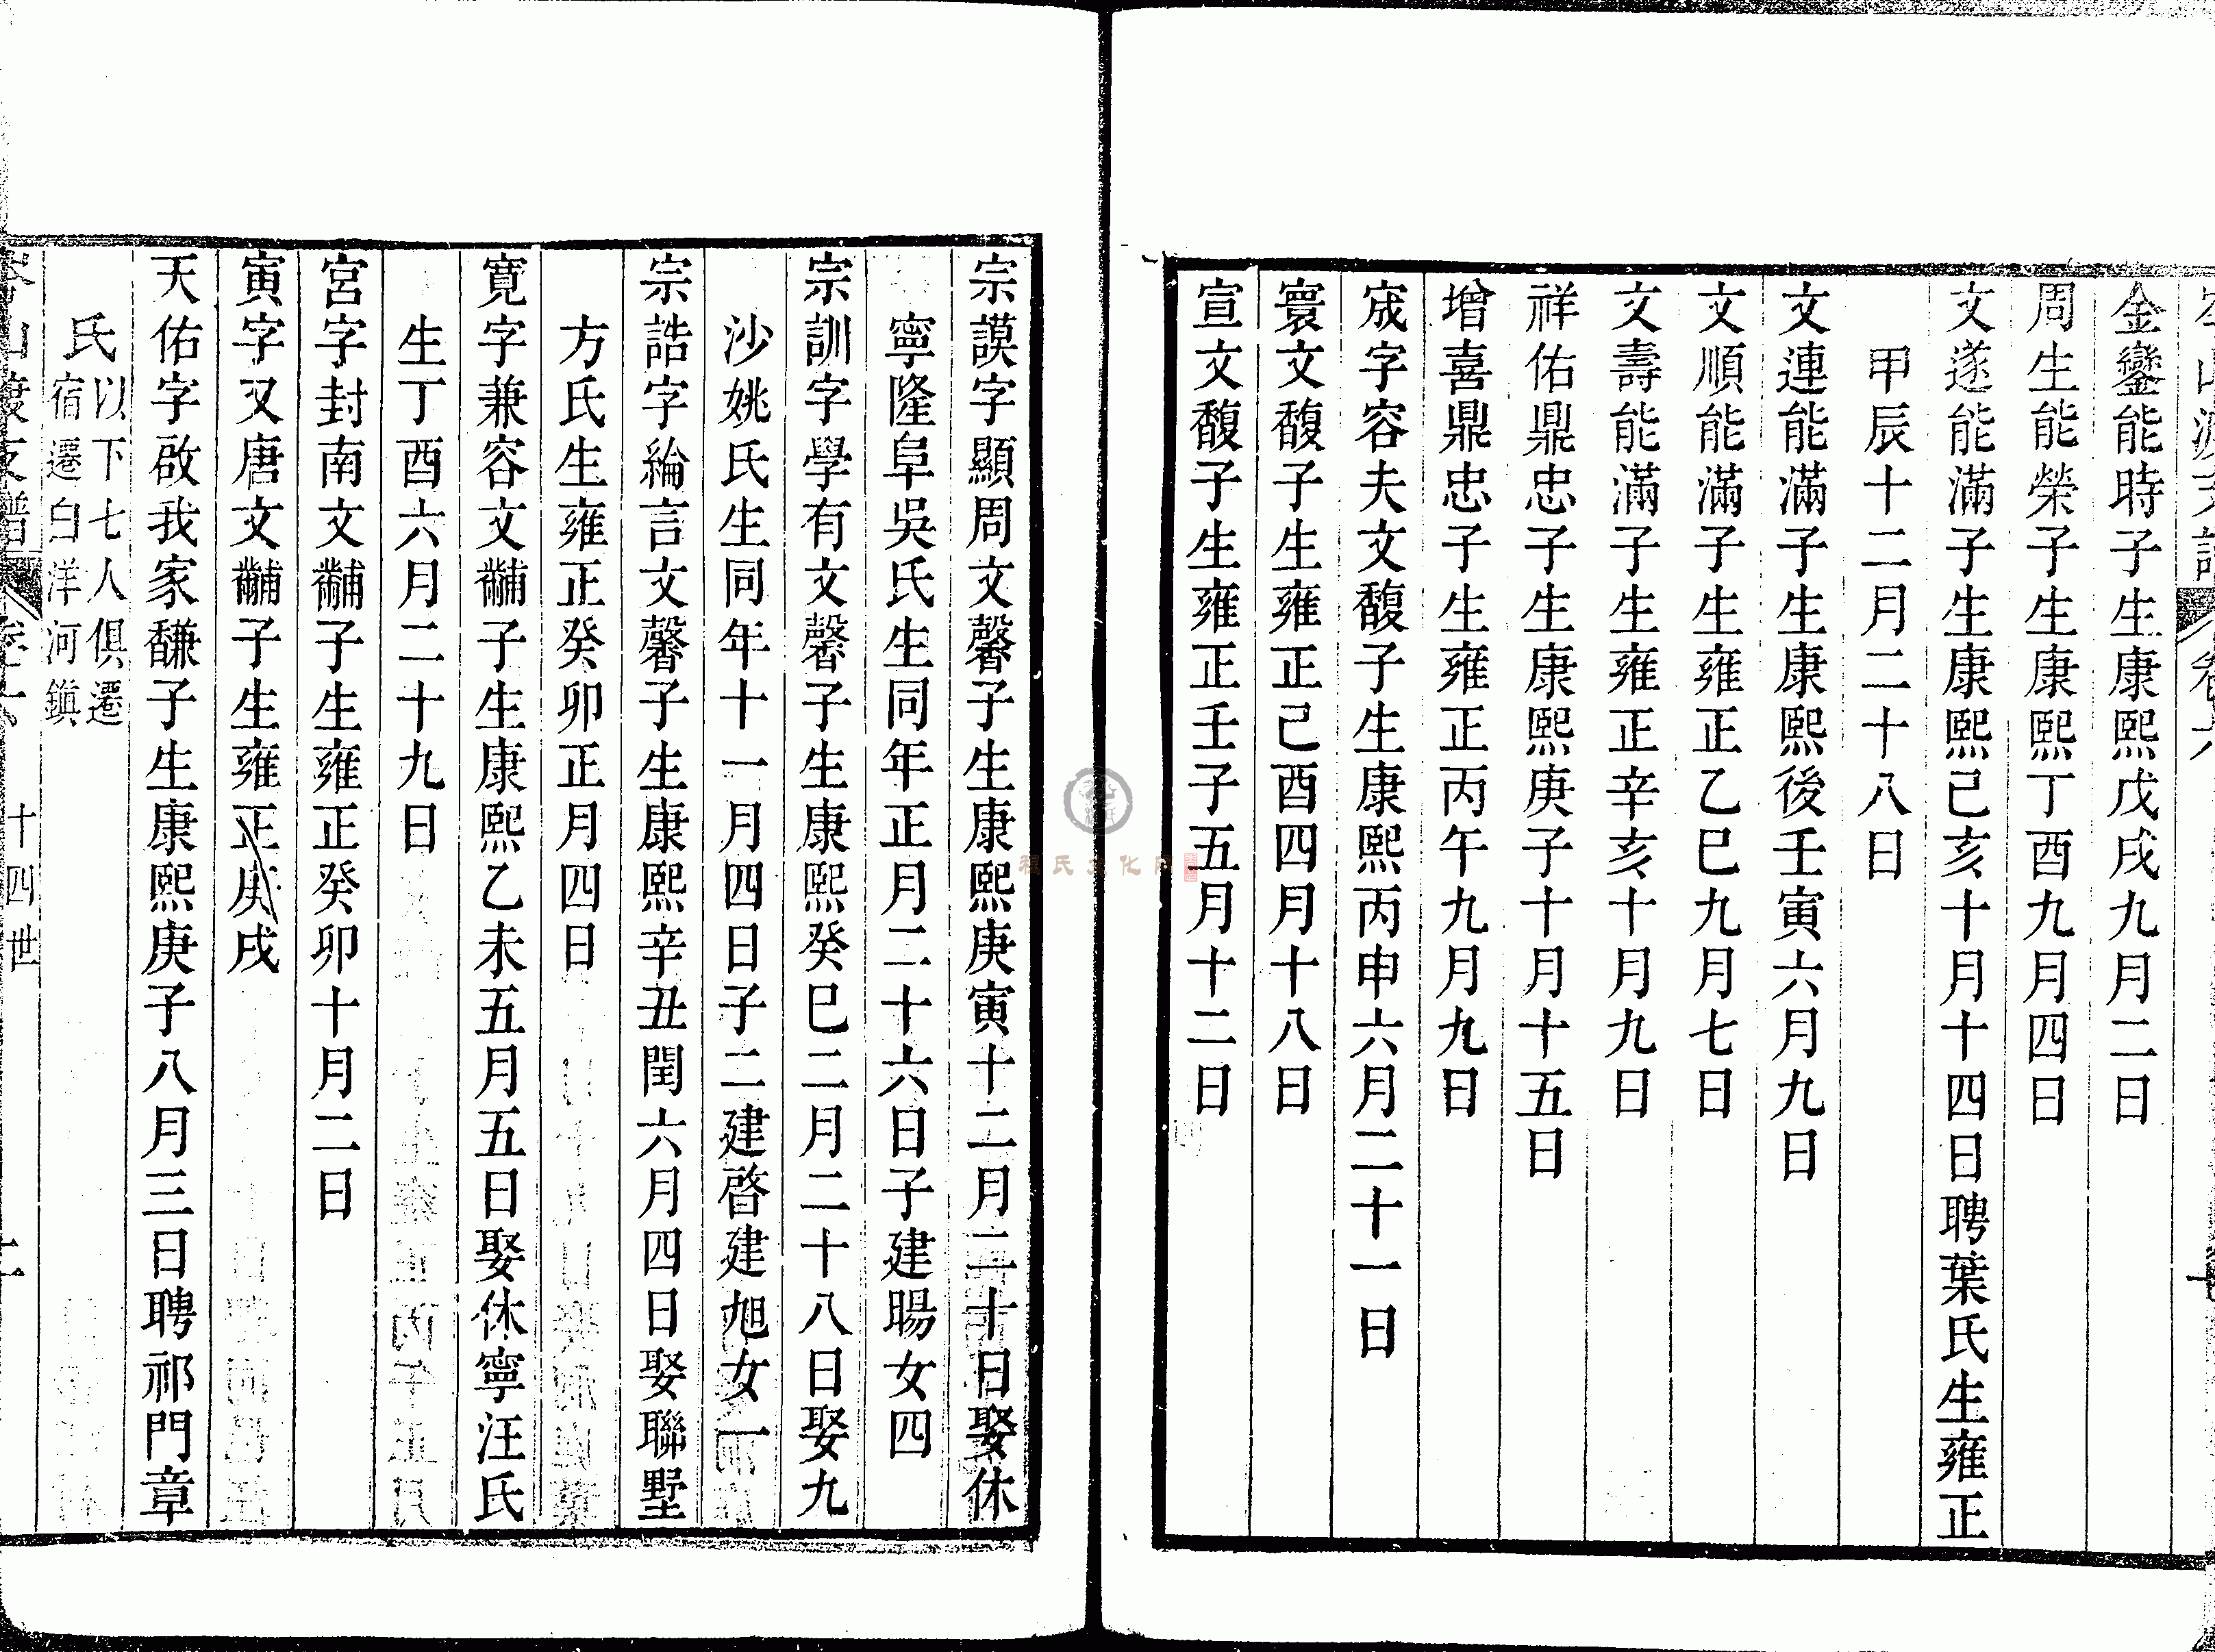 金鑾能時子生康熙戊戌九月二日
周生能榮子生康熙丁酉九月四日
文遂能滿子生康熙己亥十月十四日聘葉氏生雍正
甲辰十二月二十八日
文連能滿子生康熙後壬寅六月九日
文順能滿子生雍正乙巳九月七日
文壽能滿子生雍正辛亥十月九日
祥佑鼎忠子生康熙庚子十月十五日
增喜鼎忠子生雍正丙午九月九日
宬字容夫文馥子生康熙丙申六月二十一日
寰文馥子生雍正己酉四月十八日
宣文馥子生雍正壬子五月十二日
宗謨字顯周文馨子生康熙庚寅十二月二十日娶休
寧隆阜吳氏生同年正月二十六日子建暘女四
宗訓字學有文馨子生康熙癸巳二月二十八日娶九
沙姚氏生同年十一月四日子二建啓建旭女一
宗誥字綸言文馨子生康熙辛丑閏六月四日娶聯墅
方氏生雍正癸卯正月四日
寬字兼容文黼子生康熙乙未五月五日娶休寧汪氏
生丁酉六月二十九日
宮字封南文黼子生雍正癸卯十月二日
寅字又唐文黼子生雍正庚戌
天佑字啟我家馦子生康熙庚子八月三日聘祁門章
氏以下七人俱遷宿遷白洋河鎮
十四世
程氏文化网